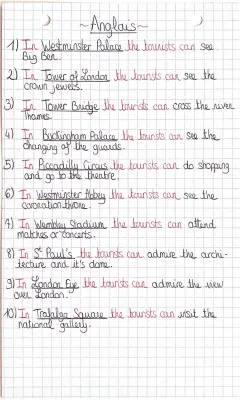 ~Anglais~
1) In Westminster Palace the tourists can see
Big Ben.
2) In Tower of London the tourists can see the
crown jewels.
3) In Tower Bridge the tourists can cross the river
Thames.
4) In Buckingham Palace the tourists can see the
changing of the guards.
5) In Piccadilly Circus the tourists can do shopping
and go to the theatre.
6) In Westminster Abbey the tourists can see the
coronation throne.
7) In Wembley Stadium the tourists can attend
matches or concerts.
8) In St Paul's the tourists can admire the archi-
tecture and it's dome.
9) In London Eye the tourists can admire the view
over London.
10) In Trafalga Square the tourists can visit the
national gallery.